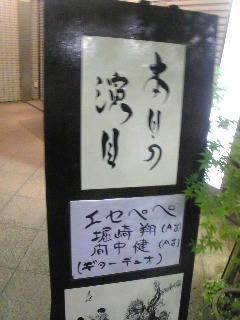 本日の
演目
エセペペ
堀崎 翔 (A.G)
間中 健 (A.G)
(ギターデュオ)